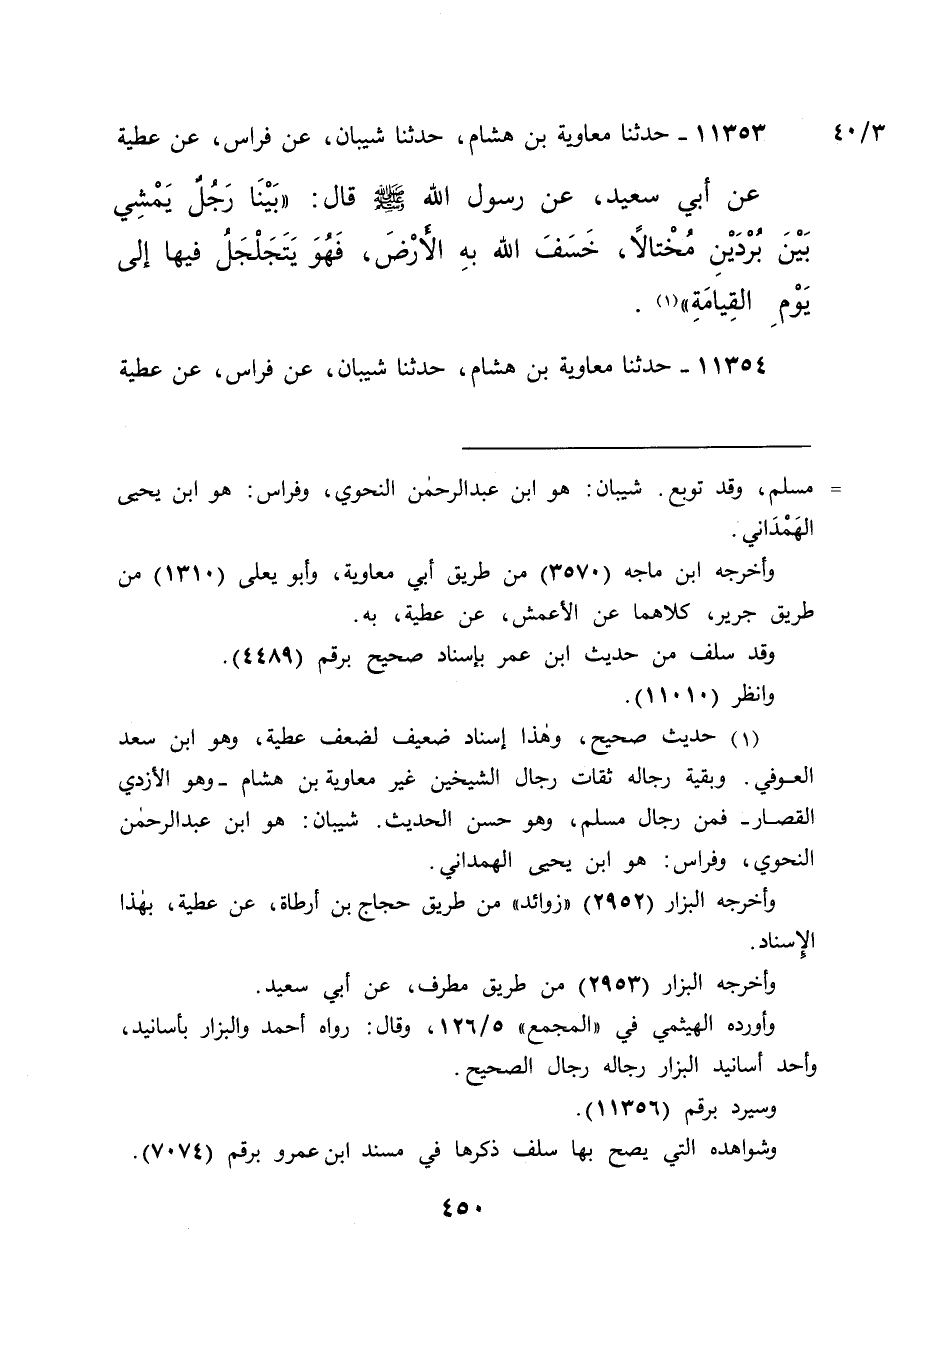 ٤٠/٣ ١١٣٥٣ ـ حدثنا معاوية بن هشام، حدثنا شيبان، عن فراس، عن عطية
عن أبي سعيد، عن رسول الله ﷺ قال: «بَيْنَا رَجُلٌ يَمْشِي
بَيْنَ بُرْدَيْنِ مُخْتالاً، خَسَفَ الله بهِ الأَرْضَ، فَهُوَ يَتَجَلْجَلُ فيها إلى
يَوْمِ القِيامَةِ»(١) .
١١٣٥٤ ـ حدثنا معاوية بن هشام، حدثنا شيبان، عن فراس، عن عطية
= مسلم، وقد توبع. شيبان: هو ابن عبدالرحمٰن النحوي، وفراس: هو ابن يحيى
الهَمْدَاني.
وأخرجه ابن ماجه (٣٥٧٠) من طريق أبي معاوية، وأبو يعلى (١٣١٠) من
طريق جرير، كلاهما عن الأعمش، عن عطية، به.
وقد سلف من حديث ابن عمر بإسناد صحيح برقم (٤٤٨٩).
وانظر (١١٠١٠).
(١) حديث صحيح، وهٰذا إسناد ضعيف لضعف عطية، وهو ابن سعد
العوفي. وبقية رجاله ثقات رجال الشيخين غير معاوية بن هشام ـ وهو الأزدي
القصار ـ فمن رجال مسلم، وهو حسن الحديث. شيبان: هو ابن عبدالرحمٰن
النحوي، وفراس: هو ابن يحيى الهمداني.
وأخرجه البزار (٢٩٥٢) «زوائد» من طريق حجاج بن أرطاة، عن عطية، بهٰذا
الإسناد.
وأخرجه البزار (٢٩٥٣) من طريق مطرف، عن أبي سعيد.
وأورده الهيثمي في «المجمع» ١٢٦/٥، وقال: رواه أحمد والبزار بأسانيد،
وأحد أسانيد البزار رجاله رجال الصحيح.
وسيرد برقم (١١٣٥٦).
وشواهده التي يصح بها سلف ذكرها في مسند ابن عمرو برقم (٧٠٧٤).
٤٥٠